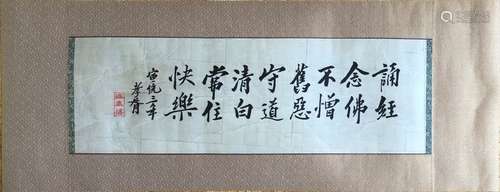 誦經
念佛
不憎
舊惡
守道
清白
常住
快樂
宣統三年